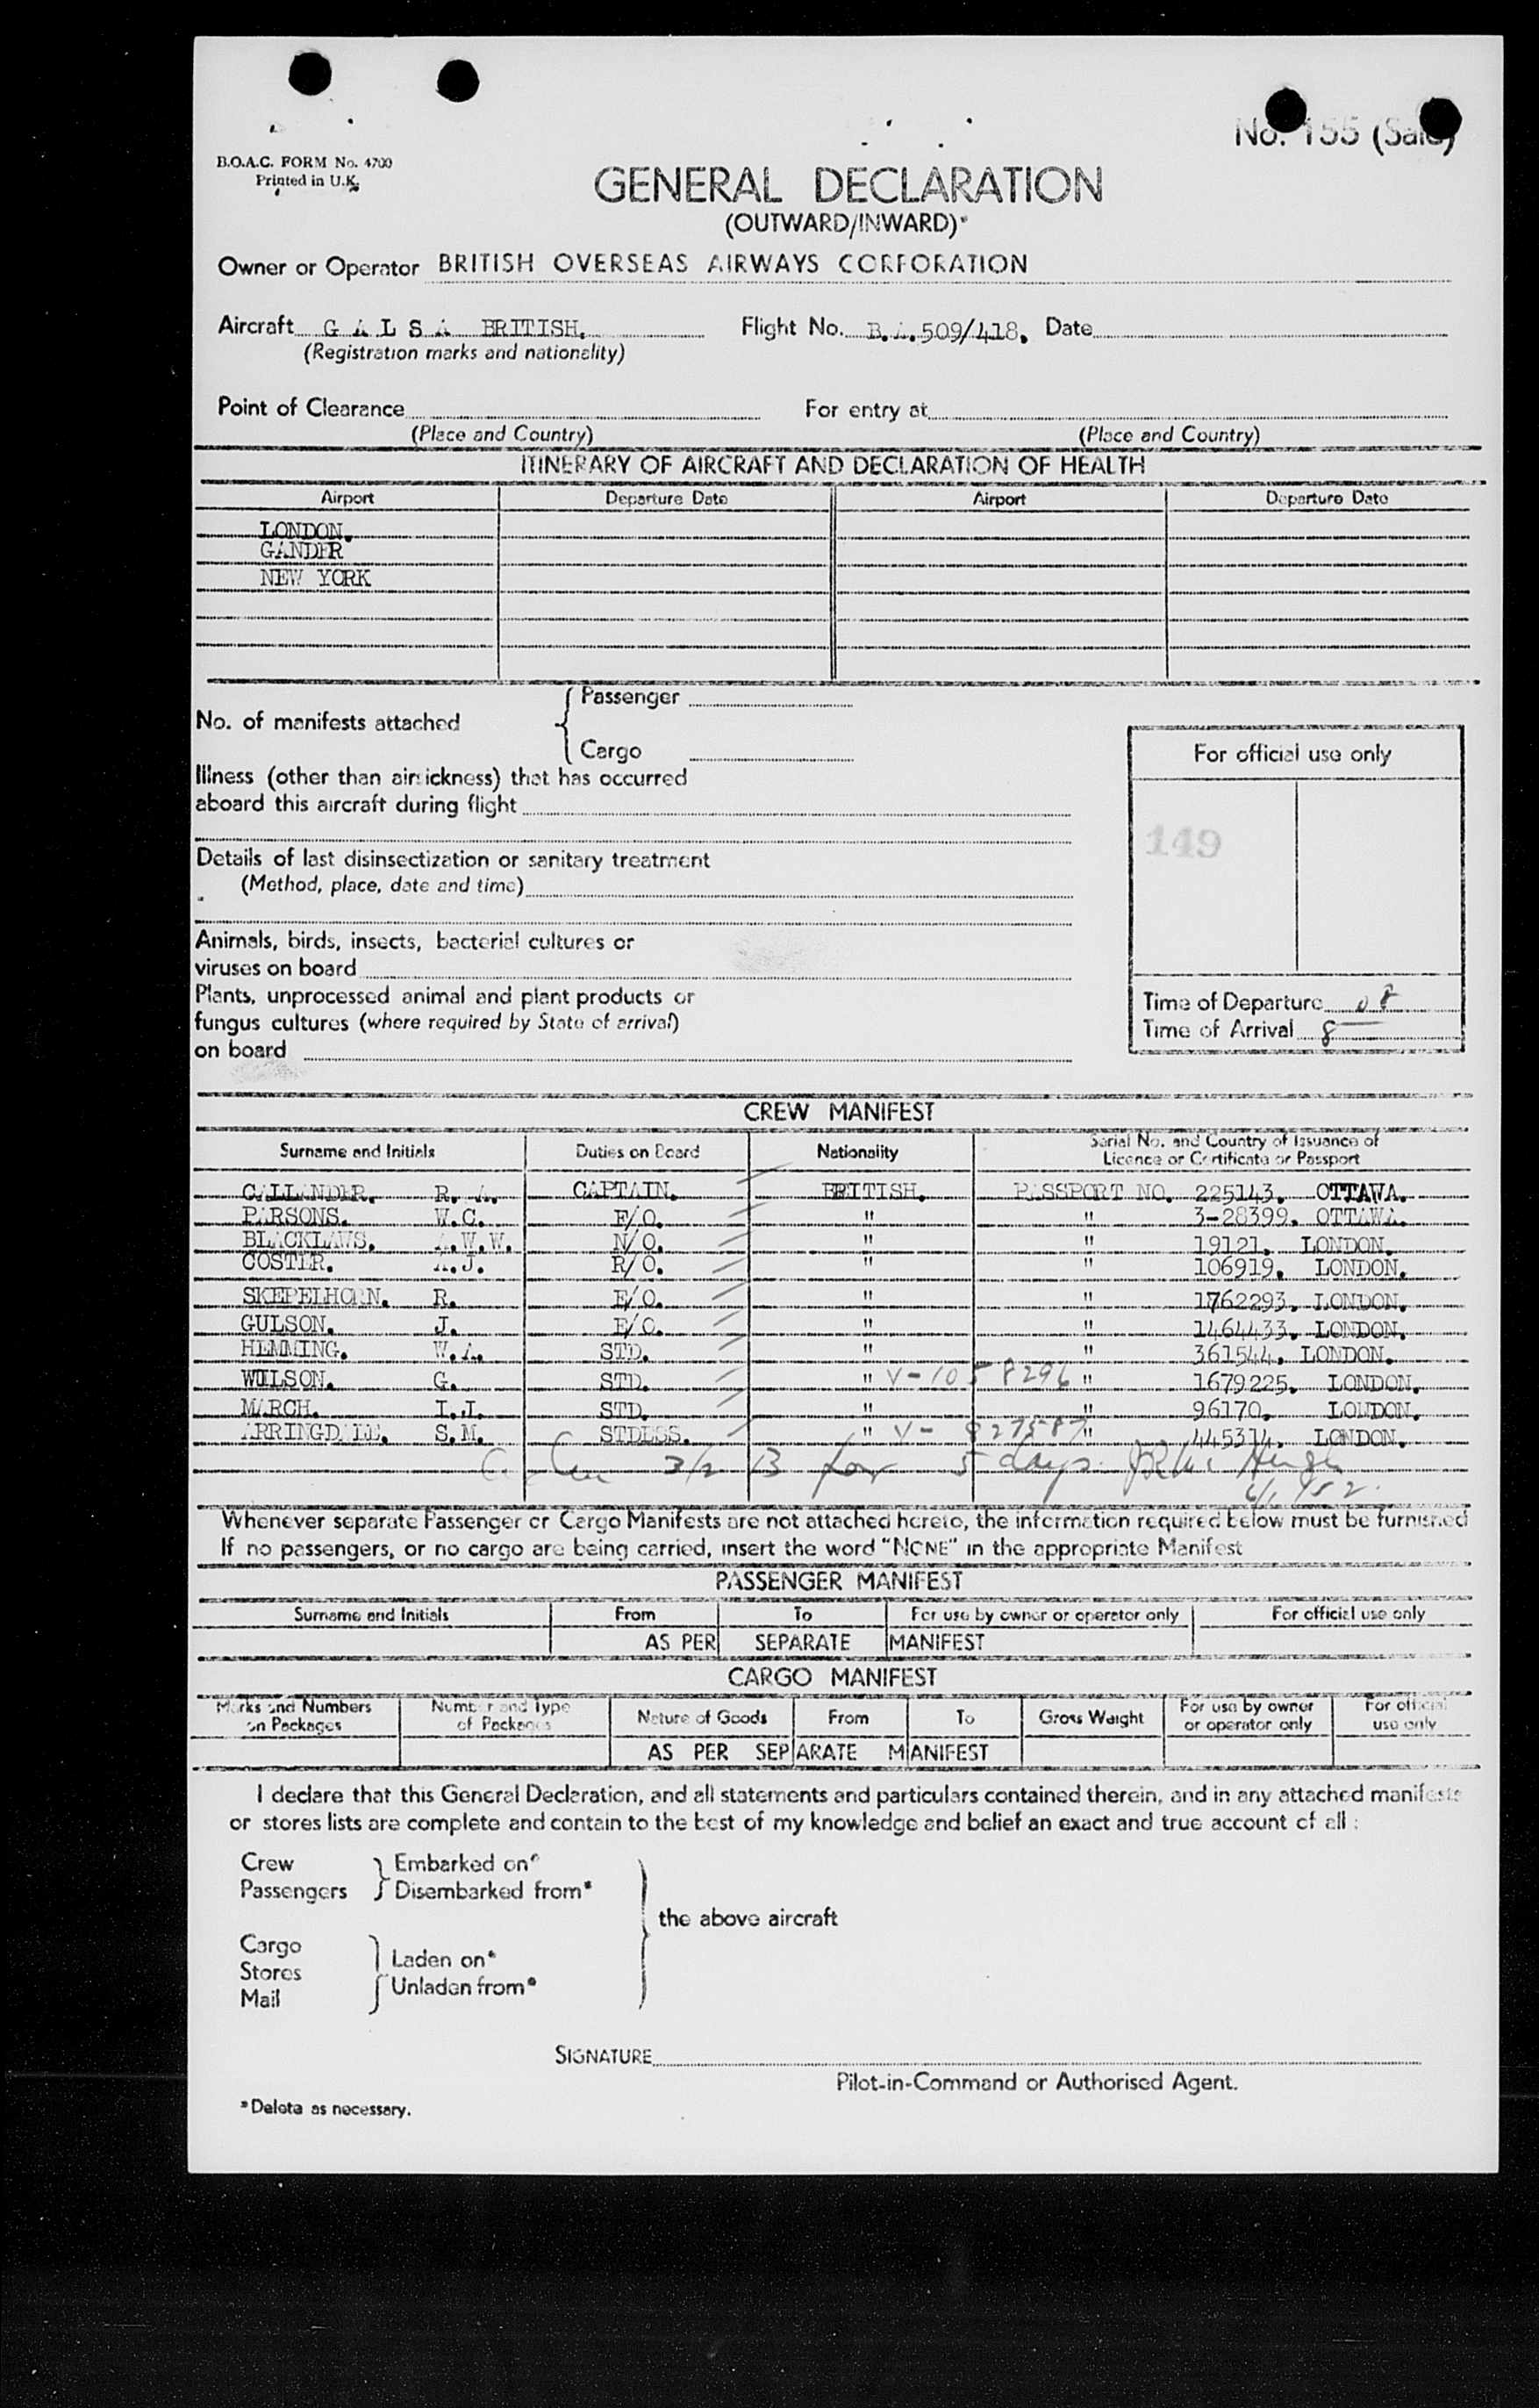 No. 155 (Sale)
B.O.A.C. FORM No. 4700
Printed in U.K.
GENERAL DECLARATION
(OUTWARD/INWARD)*
Owner or Operator BRITISH OVERSEAS AIRWAYS CORPORATION
Aircraft G A L S A BRITISH. Flight No. B.A.509/418. Date
(Registration marks and nationality)
Point of Clearance For entry at
(Place and Country) (Place and Country)
ITINERARY OF AIRCRAFT AND DECLARATION OF HEALTH
Airport Departure Date Airport Departure Date
LONDON.
GANDER
NEW YORK
No. of manifests attached { Passenger
Cargo
Illness (other than airsickness) that has occurred
aboard this aircraft during flight
Details of last disinsectization or sanitary treatment
(Method, place, date and time)
Animals, birds, insects, bacterial cultures or
viruses on board
Plants, unprocessed animal and plant products or
fungus cultures (where required by State of arrival)
on board
For official use only
149
Time of Departure
Time of Arrival 8
CREW MANIFEST
Surname and Initials Duties on Board Nationality Serial No. and Country of Issuance of Licence or Certificate or Passport
CALLANDER. R. A. CAPTAIN. BRITISH. PASSPORT NO. 225143. OTTAWA.
PARSONS. W.C. F/O. " " 3-28399. OTTAWA.
BLACKLAWS. A.W.W. N/O. " " 19121. LONDON.
COSTER. A.J. R/O. " " 106919. LONDON.
SKEPELHORN. R. E/O. " " 1762293. LONDON.
GULSON. J. E/O. " " 1464433. LONDON.
HEMMING. W.A. STD. " " 361544. LONDON.
WILSON. G. STD. " V-1058296 " 1679225. LONDON.
MARCH. I.I. STD. " " 96170. LONDON.
ARRINGDALE. S.M. STDESS. " V- 827587 " 445314. LONDON.
3/2 B for 5 days.
6/1/52.
Whenever separate Passenger or Cargo Manifests are not attached hereto, the information required below must be furnished
If no passengers, or no cargo are being carried, insert the word "NONE" in the appropriate Manifest
PASSENGER MANIFEST
Surname and Initials From To For use by owner or operator only For official use only
AS PER SEPARATE MANIFEST
CARGO MANIFEST
Marks and Numbers on Packages Number and Type of Packages Nature of Goods From To Gross Weight For use by owner or operator only For official use only
AS PER SEPARATE MANIFEST
I declare that this General Declaration, and all statements and particulars contained therein, and in any attached manifests
or stores lists are complete and contain to the best of my knowledge and belief an exact and true account of all :
Crew } Embarked on*
Passengers } Disembarked from*
the above aircraft
Cargo
Stores
Mail
Laden on*
Unladen from*
SIGNATURE
Pilot-in-Command or Authorised Agent.
*Delete as necessary.